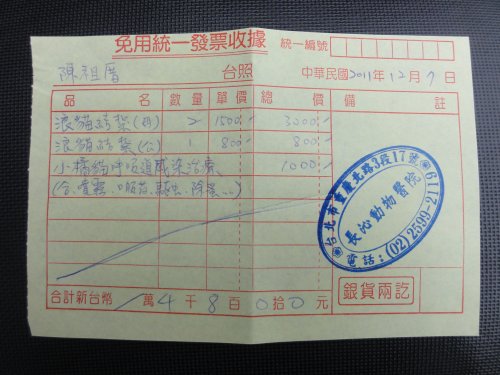 免用統一發票收據 統一編號
陳祖厝 台照 中華民國2011年12月7日
品名 數量 單價 總價 備註
浪貓結紮(母) 2 1500.- 3000.-
浪貓結紮(公) 1 800.- 800.-
小橘貓呼吸道感染治療 1000.-
(含,口服药,除蚤...)
台北市重慶北路3段17號
長沁動物醫院
電話:(02)2599-2119
合計新台幣 萬4千8百0拾0元
銀貨兩訖